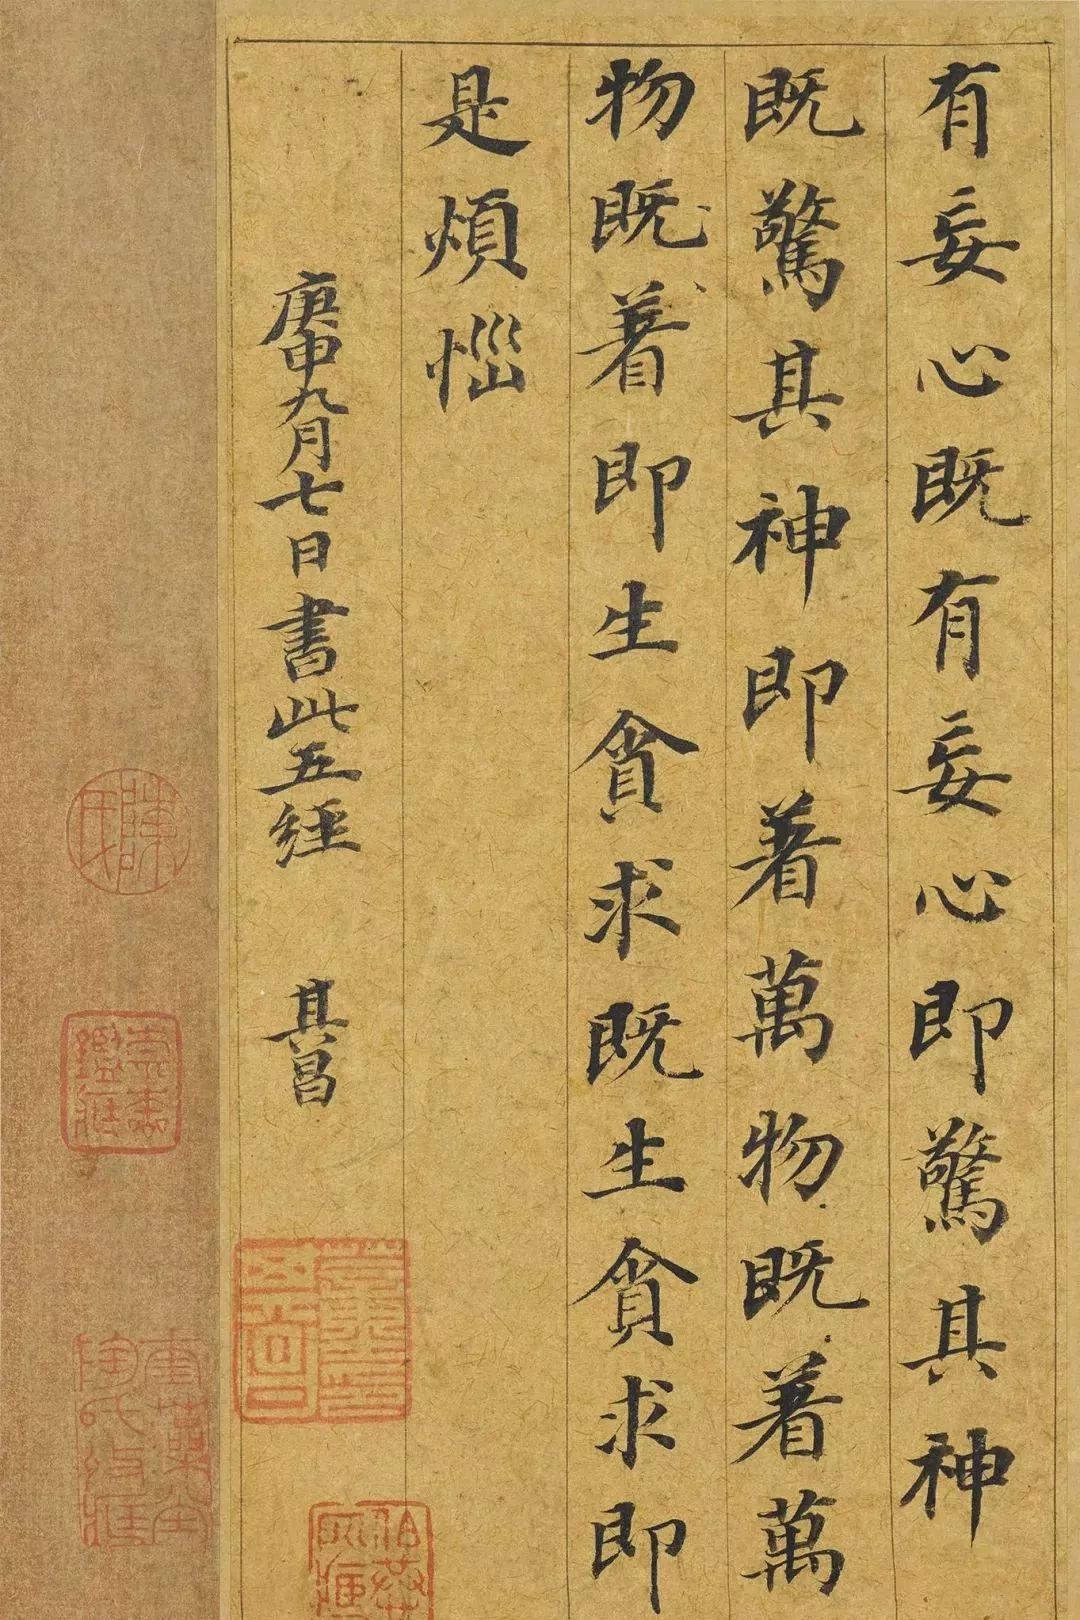 有妄心既有妄心即驚其神
既驚其神即著萬物既著萬
物既著即生貪求既生貪求即
是煩惱
庚申九月七日書此五經 其昌